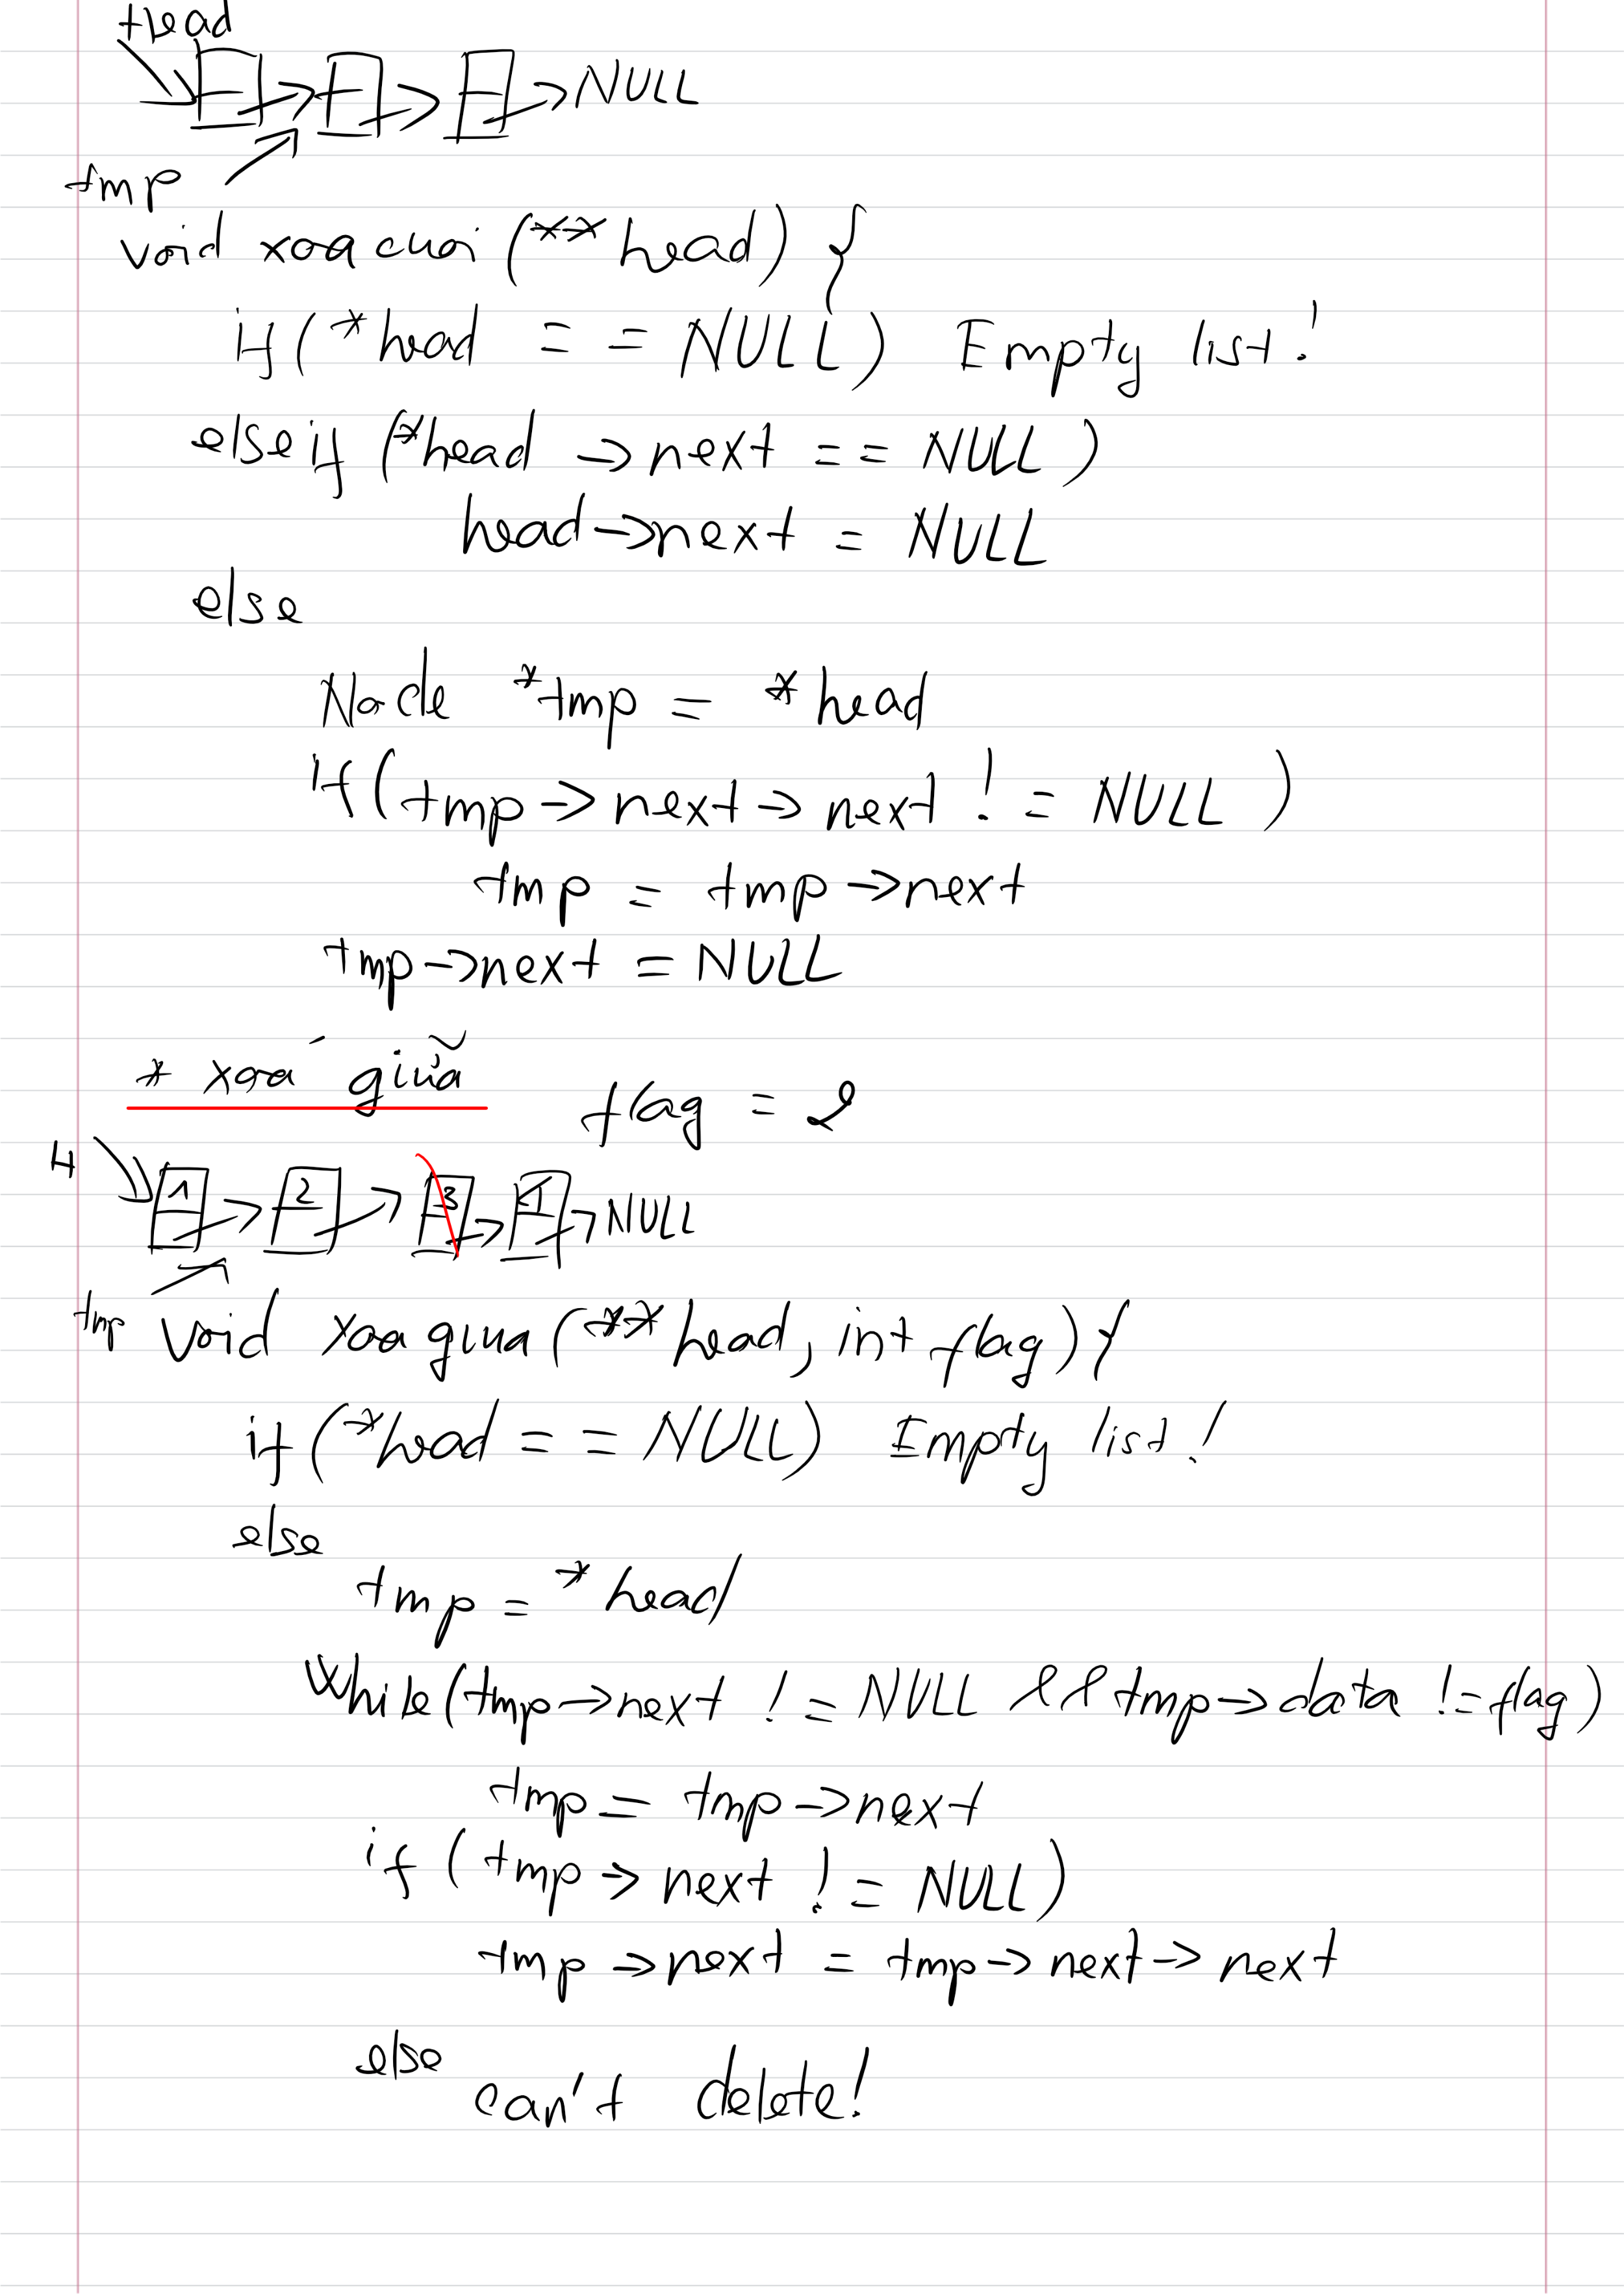 Head
NULL
tmp
void xoacuoi (** head) {
if (*head == NULL) Empty list!
else if (*head -> next == NULL)
head -> next = NULL
else
Node *tmp = *head
if (tmp -> next -> next != NULL)
tmp = tmp -> next
tmp -> next = NULL
* xoá giữa
flag = 2
H
1 2 3 4 NULL
tmp
void xoagiua (** head, int flag) {
if (*head == NULL) Empty list!
else
tmp = *head
While (tmp -> next != NULL && tmp -> data != flag)
tmp = tmp -> next
if (tmp -> next != NULL)
tmp -> next = tmp -> next -> next
else
can't delete!